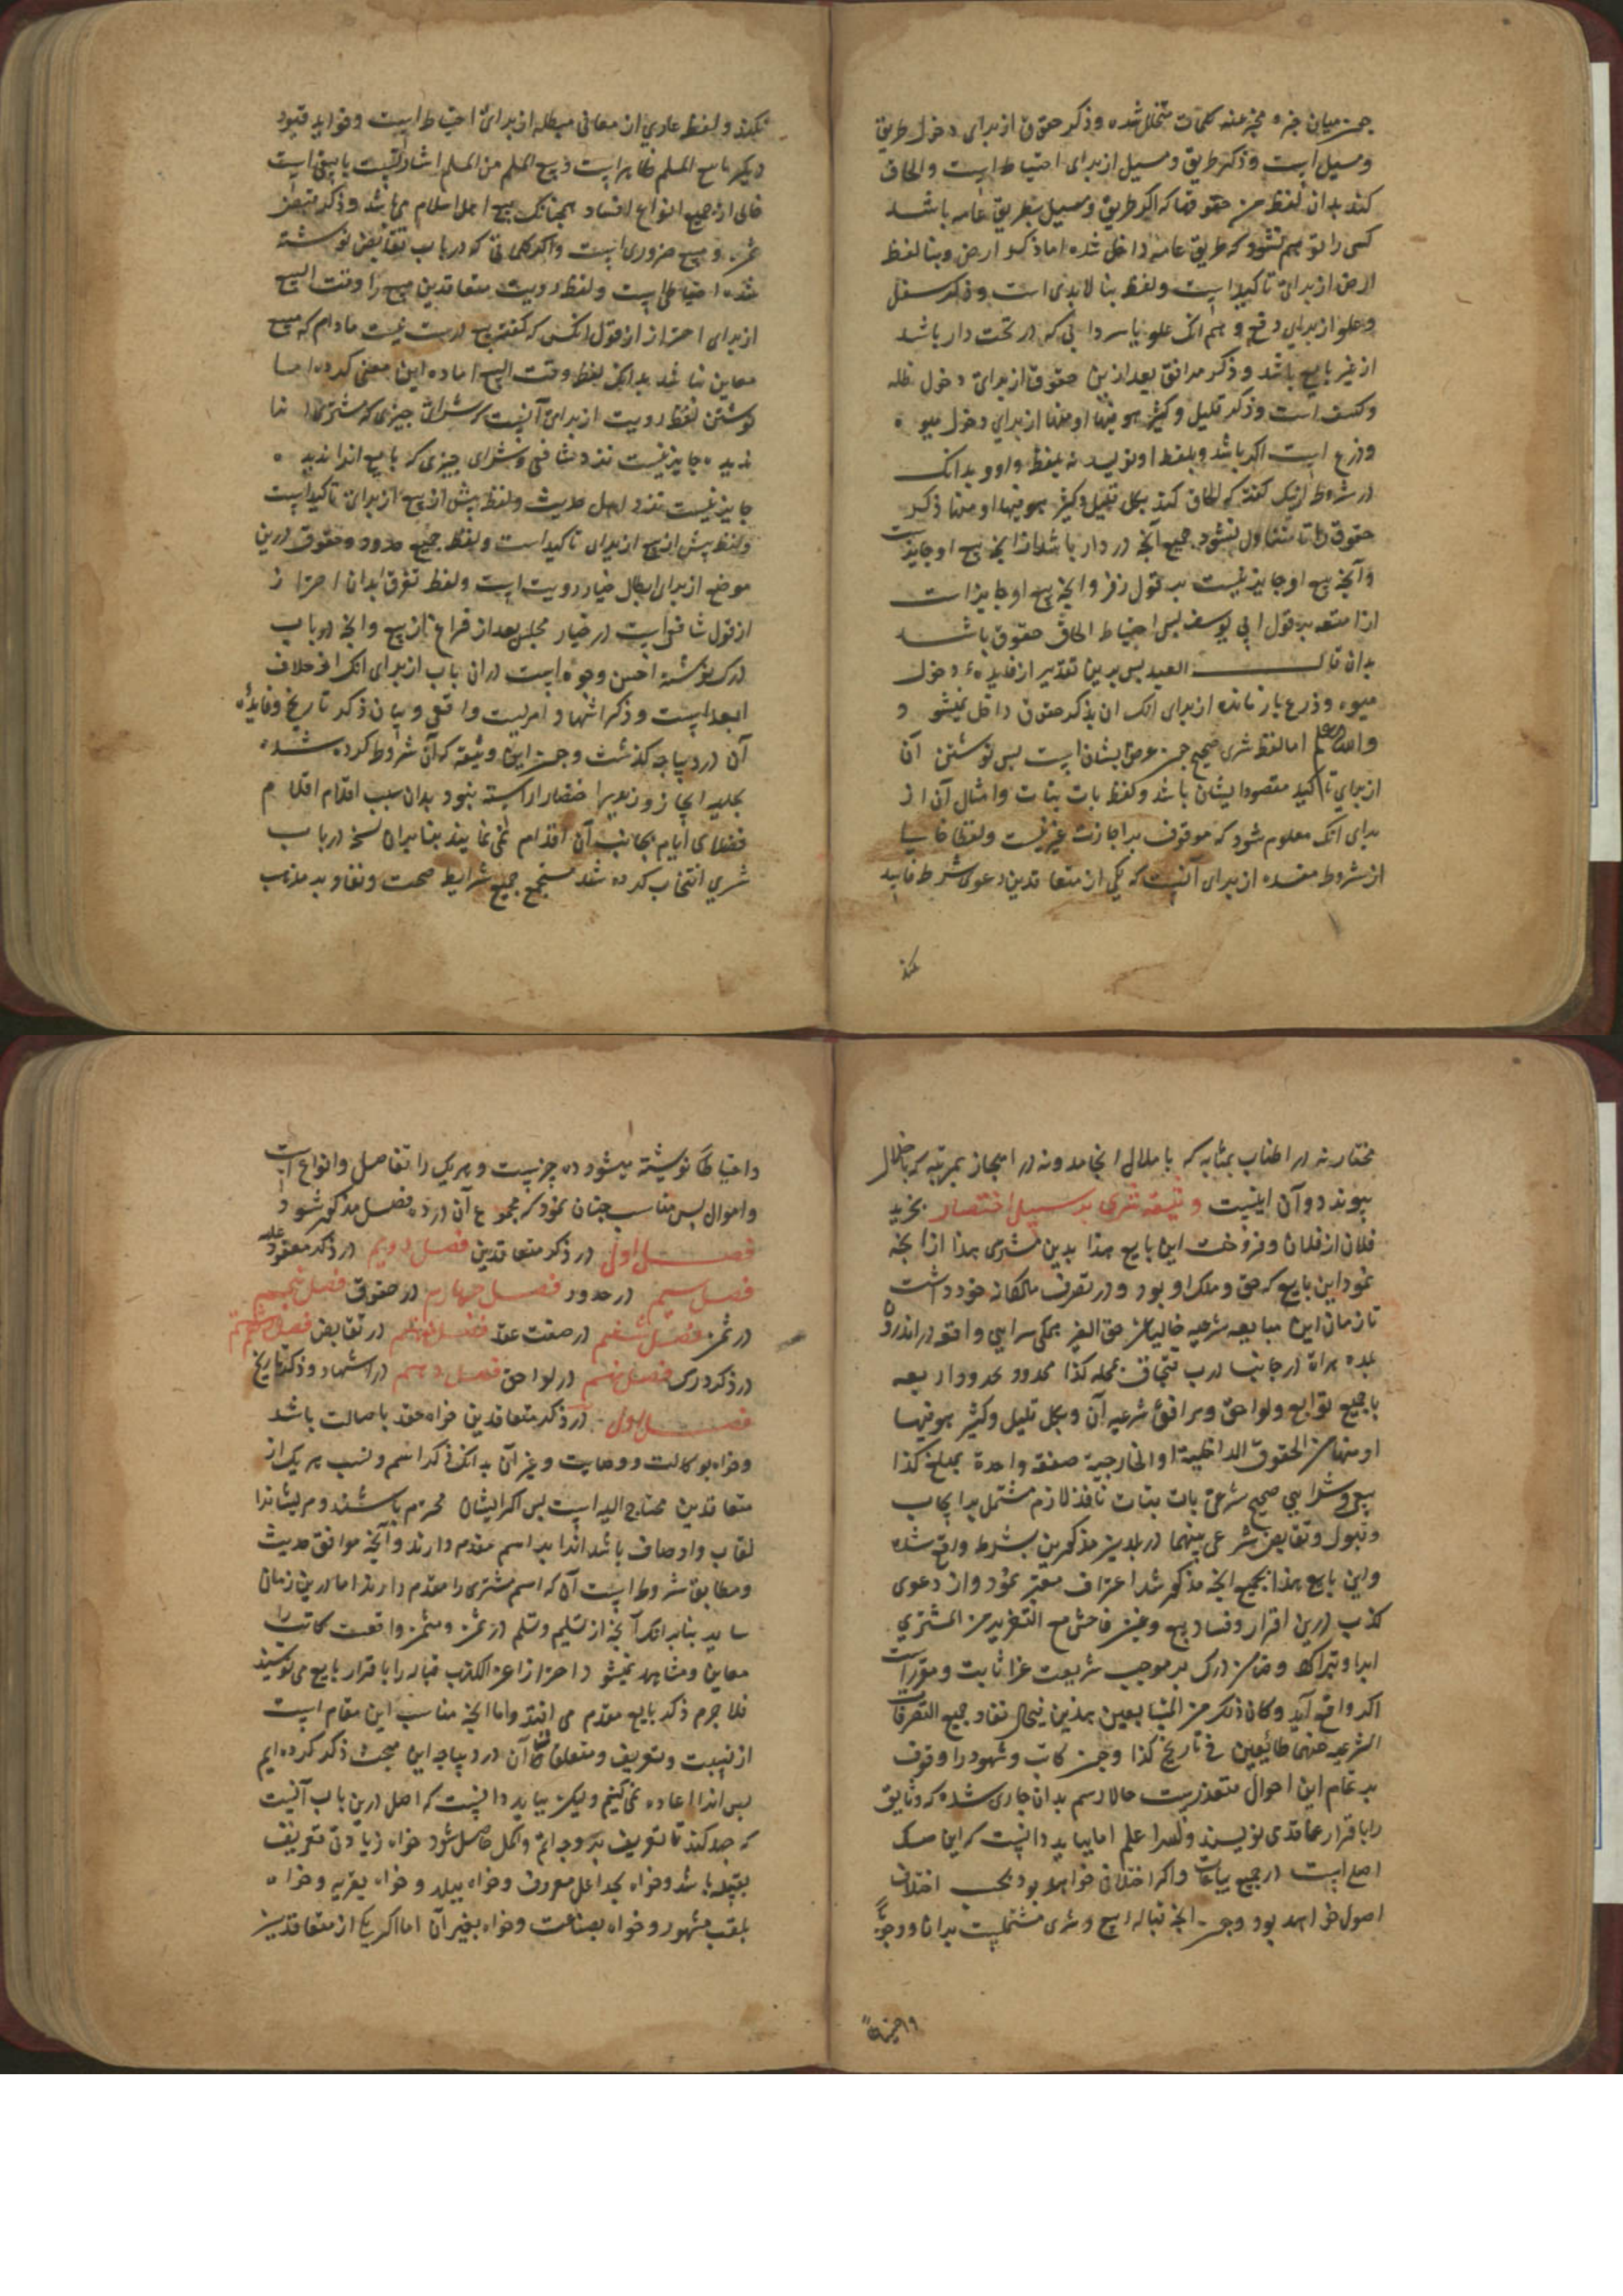 چون میان خبر و مخبر عنه کلمات متخلل شده و ذکر حقوق از برای دخول طریق
و مسیل است و ذکر طریق و مسیل از برای احتیاط است و الحاق
کند بدان لفظ من حقوقها که اکر طریق و مسیل بطریق عامه باشد
کسی را توهم نشود که طریق عامه داخل شده اما ذکر ارض و بنا لفظ
ارض از برای تاکید است و لفظ بنا لابدی است و ذکر سفل
و علو از برای دفع وهم آنک علو یا سردابی که در تحت دار باشد
از غیر بایع باشد و ذکر مرافق بعد ازین حقوق از برای دخول ظله
و کنیف است و ذکر قلیل و کثیر هو فیها او منها از برای دخول میوه
و زرع است اکر باشد و بلفظ او نویسد نه بلفظ واو و بدانک
در شروط نیک کفته که الحاق کند بکل قلیل و کثیر هو فیها او منها ذکر
حقوق را تا متناول نشود جمیع آنچه در دار باشد از آنچه بیع او جایزست
و آنچه بیع او جایز نیست بر قول زفر و آنچه بیع او جایز است
از امتعه بر قول ابی یوسف پس احتیاط الحاق حقوق باشد
بدان قال العبد پس برین تقدیر از فایده دخول
میوه و زرع باز مانده از برای آنک آن بذکر حقوق داخل نمیشود
والله اعلم اما لفظ شری صحیح چون غرض ایشان است پس نوشتن آن
از برای تاکید مقصود ایشان باشد و لفظ بات بتات و امثال آن از
برای آنک معلوم شود که موقوف بر اجازت غیر نیست و لفظ خالیا
از شروط مفسده از برای آنست که یکی از متعاقدین دعوی شرط فاسد
نکند
نکند و لفظ عاری از معانی مبطله از برای احتیاط است و فواید قیود
دیکر با بیع المسلم ظاهر است و بیع المسلم من المسلم اشارتست با بیعی است
خالی از جمیع انواع فساد همچنانک بیع اهل اسلام می باشد و ذکر تقابض
ثمن و مبیع ضروری است و اکر کلی که در باب تقابض نوشته
شده احتیاطی است و لفظ رویت متعاقدین مبیع را وقت البیع
از برای احتراز از قول آنکس که کفته بیع درست نیست مادام که مبیع
معاین نباشد بدانک لفظ وقت البیع افاده این معنی کرده اما
نوشتن لفظ رویت از برای آنست که شرای چیزی که مشتری آنرا
ندیده جایز نیست نزد شافعی و شرای چیزی که بایع آنرا ندیده
جایز نیست نزد اهل حدیث و لفظ پیش از بیع از برای تاکید است
و لفظ پیش از بیع از برای تاکید است و لفظ جمیع حدود و حقوق درین
موضع از برای ابطال خیار رویت است و لفظ تفرق ابدان احتراز
از قول شافعی است در خیار مجلس بعد از فراغ از بیع و آنچه در باب
درک نوشته احسن وجوه است در آن باب از برای آنک از خلاف
ابعد است و ذکر اشهاد امریست واقعی و بیان ذکر تاریخ و فایده
آن در دیباچه کذشت و چون این وثیقه که آن شروط کرده شد
بحلیه ایجاز و زیور اختصار آراسته نبود بدان سبب اقدام اقلام
فضلای ایام بجانب آن اقدام نمی نمایند بنابران نسخه در باب
شری انتخاب کرده شد مستجمع جمیع شرایط صحت و نفاد بر مذهب
مختار نه در اطناب بمثابه که با ملال انجامد و نه در ایجاز بمرتبه که باخلال
پیوندد و آن اینست وثیقه شری بر سبیل اختصار بخرید
فلان از فلان و فروخت این بایع هذا بدین مشتری هذا از آنچه
نمود این بایع که حق و ملک او بود و در تصرف مالکانه خود داشت
تا زمان این مبایعه شرعیه خالیا عن حق الغیر همکی سرایی واقعه در اندرون
بلده هراة در جانب درب قبچاق بمحله کذا محدود بحدود اربعه
با جمیع توابع و لواحق و مرافق شرعیه آن و بکل قلیل و کثیر هو فیها
او منها من الحقوق الداخلیة او الخارجیة صفقه واحدة بمبلغ کذا
بیع و شرایی صحیح شرعی بات بتات نافذ لازم مشتمل بر ایجاب
و قبول و تقابض شرعی بینهما در بدلین مذکورین بشرط واقع شده
و این بایع هذا بجمیع آنچه مذکور شد اعتراف معتبر نمود و از دعوی
کذب درین اقرار و فساد بیع و غبن فاحش مع التغریر من المشتری
ابرا و تبرا کرد و ضامن درک بر موجب شریعت غرا ثابت و مقررست
اکر واقع آید و کان ذلک من المتبایعین هذین فی حال نفاد جمیع التصرفات
الشرعیه عنهما طائعین فی تاریخ کذا و چون کاتب و شهود را وقوف
بر تمام این احوال متعذرست حالا رسم بدان جاری شده که وثایق
را باقرار عاقدی نویسند والله اعلم اما بباید دانست که این صک
اصل است در جمیع بیاعات و اکر اختلاف خواهد بود بحسب اختلاف
اصول خواهد بود و چون آنچه قباله بیع و شری مشتملست بدان وجوبا
و احتیاطا
و احتیاطا نوشته میشود ده چیزست و هر یک را تفاصیل و انواع است
و احوال پس مناسب چنان نمود که مجموع آن در ده فصل مذکور شود
فصل اول در ذکر متعاقدین فصل دویم در ذکر معقود علیه
فصل سیم در حدود فصل چهارم در حقوق فصل پنجم
در ثمن فصل ششم در صفت عقد فصل هفتم در تقابض فصل هشتم
در ذکر درک فصل نهم در لواحق فصل دهم در اشهاد و ذکر تاریخ
فصل اول در ذکر متعاقدین خواه عقد باصالت باشد
و خواه بوکالت و وصایت و غیر آن بدانک ذکر اسم و نسب هر یک از
متعاقدین محتاج الیه است پس اکر ایشان محترم باشند و مر ایشانرا
القاب و اوصاف باشد آنرا بر اسم مقدم دارند و آنچه موافق حدیث
و مطابق شروط است آن که اسم مشتری را مقدم دارند اما درین زمان
شاید بنابر آنک آنچه از تسلیم و تسلم در ثمن و مثمن واقعست کاتب را
معاین و مشاهد نمیشود احترازا عن الکذب قباله را باقرار بایع می نویسند
فلا جرم ذکر بایع مقدم می افتد و اما آنچه مناسب این مقام است
از نسبت و تعریف و متعلقات آن در دیباچه این مبحث ذکر کرده ایم
پس آنرا اعاده نمی کنیم ولیکن بباید دانست که اصل درین باب آنست
که جهد کند تا تعریف بر وجه اتم و اکمل حاصل شود خواه زیادتی تعریف
بقبیله باشد و خواه بجد اعلی معروف و خواه ببلد و خواه بقریه و خواه
بلقب مشهور و خواه بصناعت و خواه بغیر آن اما اکر یکی از متعاقدین